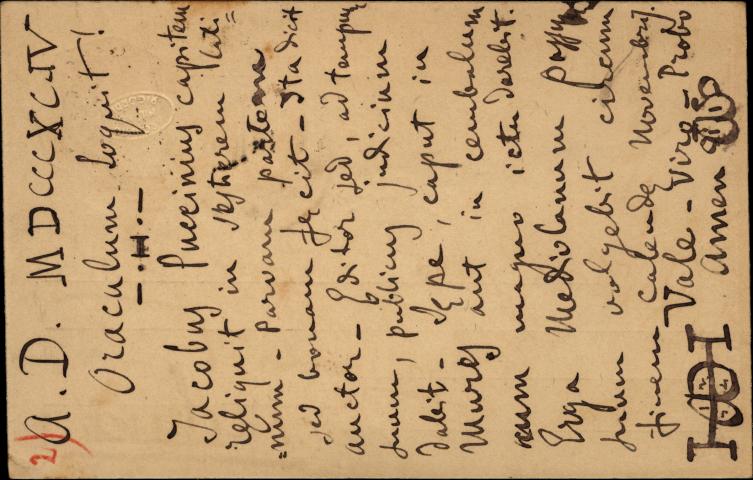 2)
A. D. MDCCCXCIV
Oraculum loquit!
—·H·—
Jacobus Puccinius capitem
reliquit in
=num - Parvam partem
sed bonam fecit - Ita dicit
auctor - Editor sed, ad tempus
suum, publicus judicium
dabit - Sepe, caput in
Mures aut in cembalum
cum magno ictu darebit.
Erga Mediolanum
suum volgebit circum
finem calendę Novembrις.
Vale - Viro - Probo
Amen